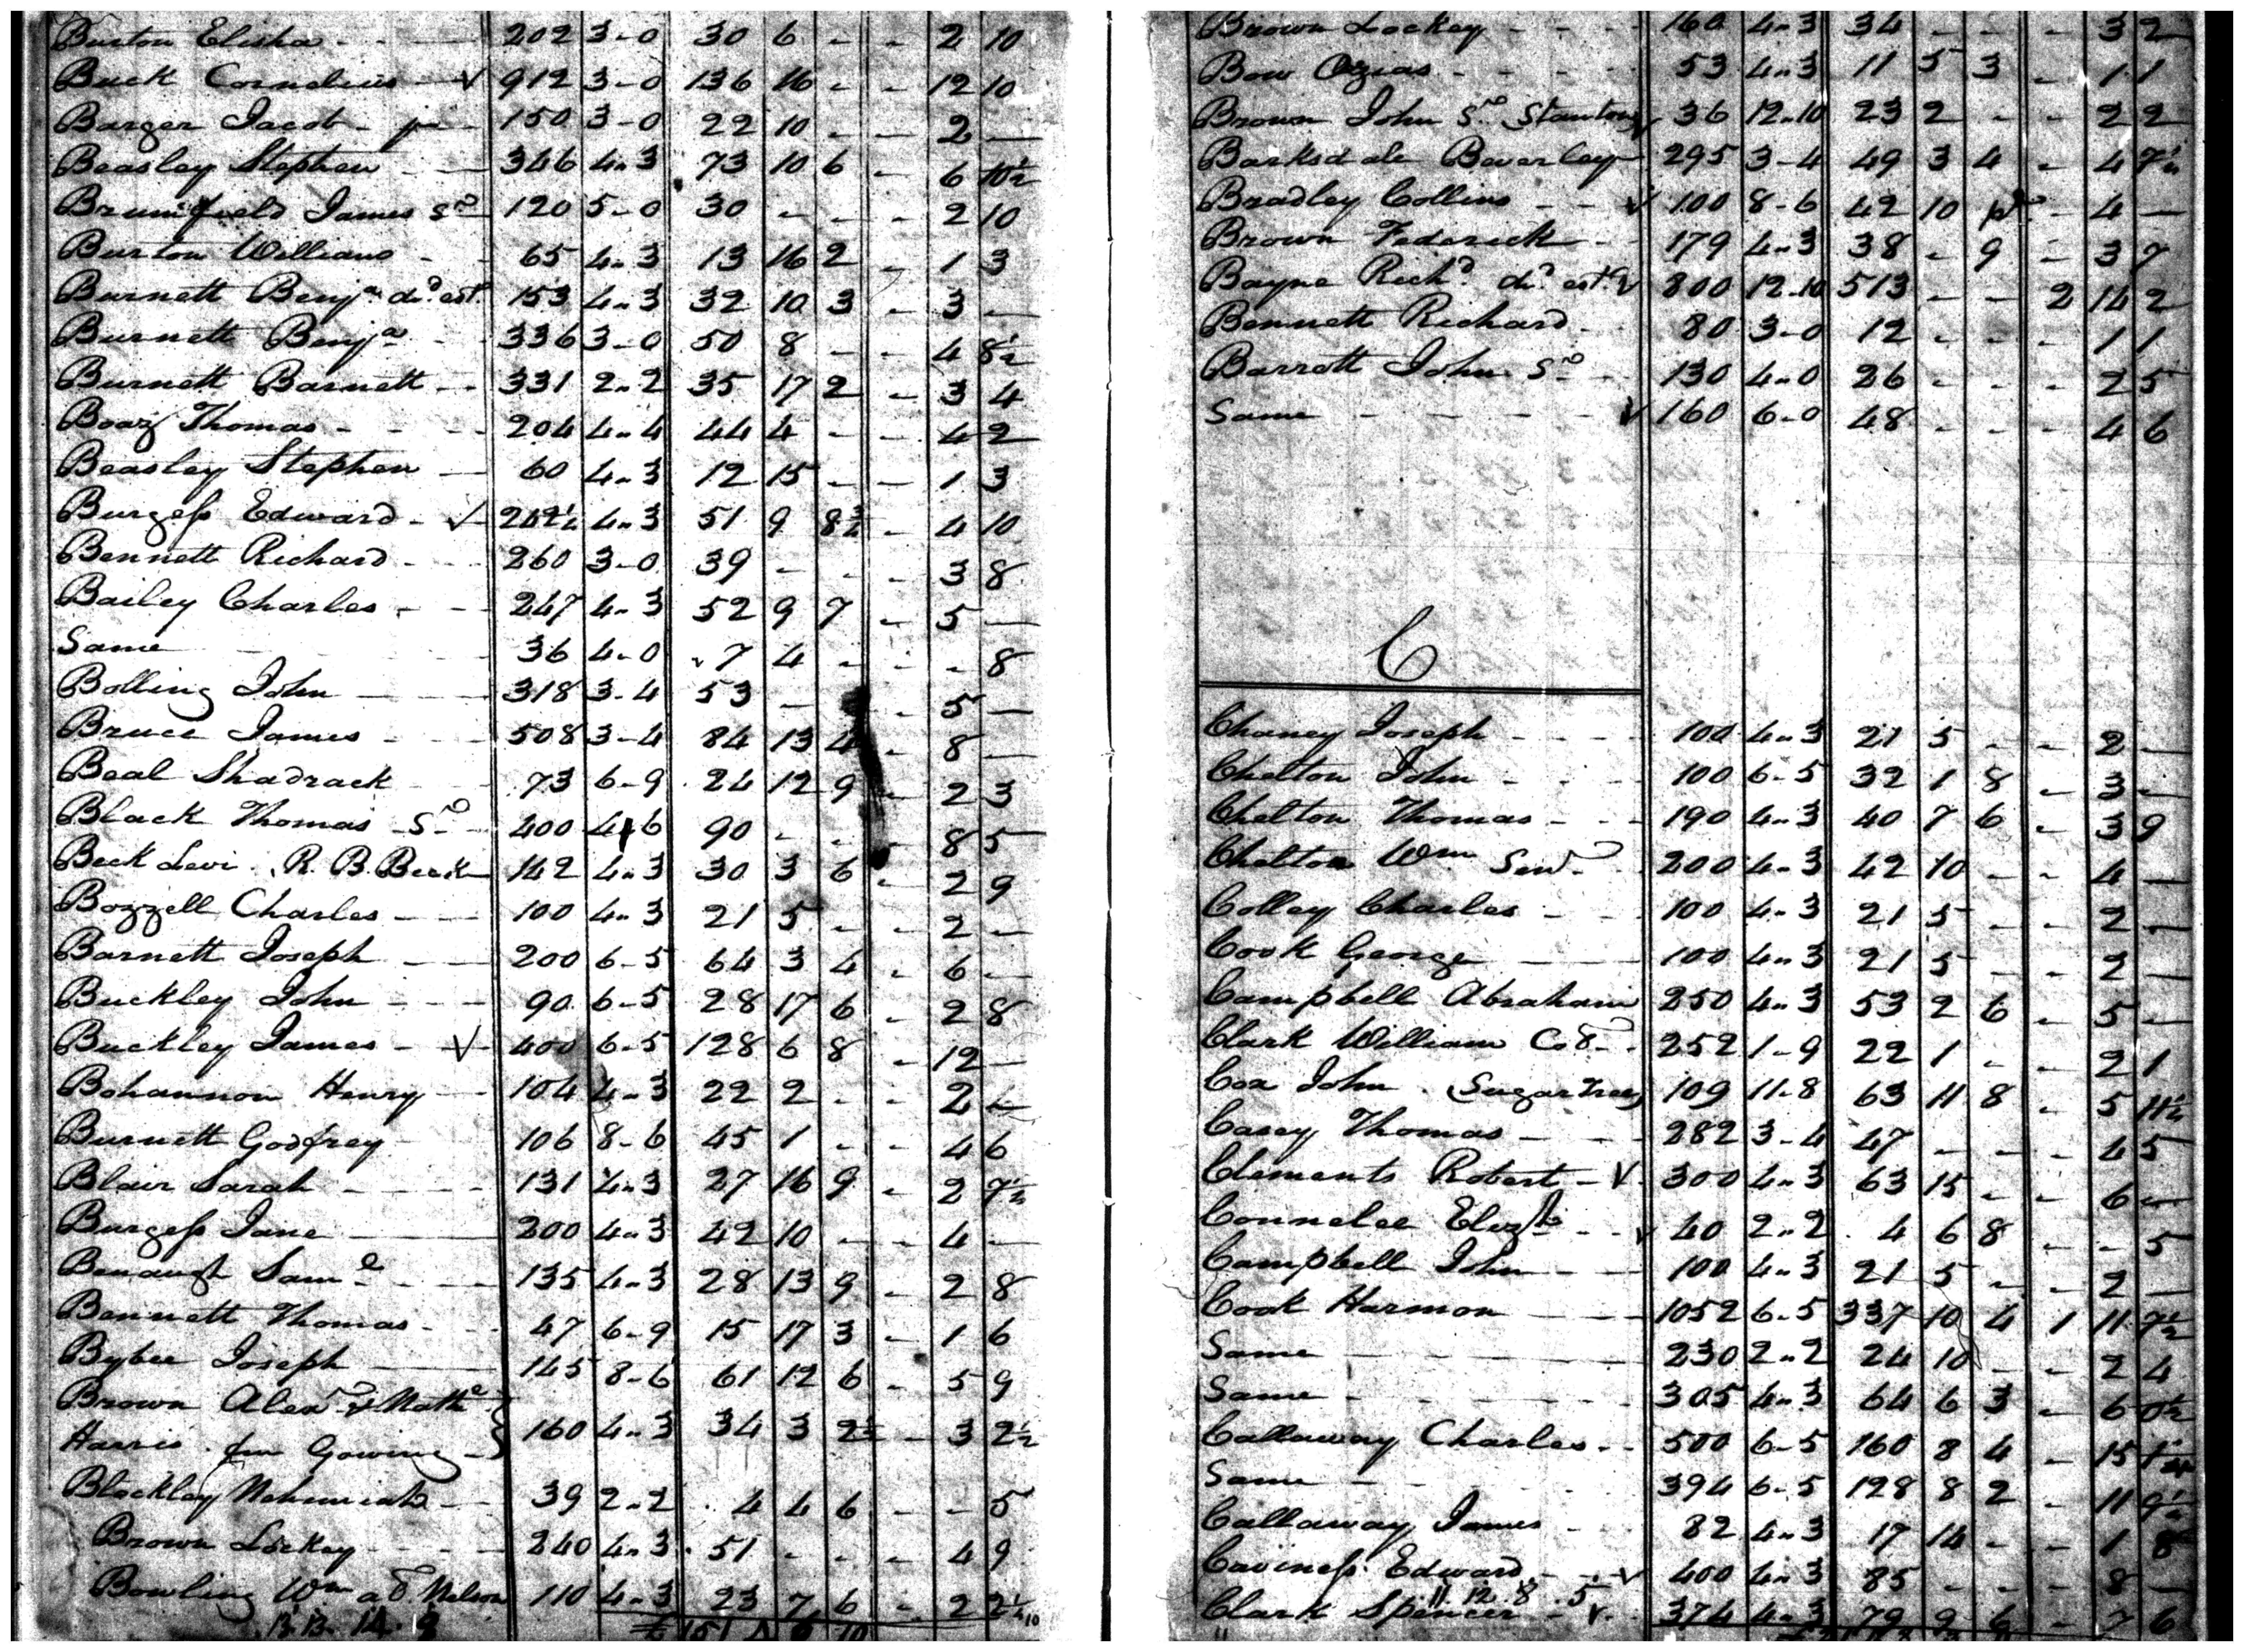 Burton Elisha - - 202 3-0 30 6 - - 2 10
Buck Cornelius - V 912 3-0 136 16 - - 12 10
Barger Jacob - 150 3-0 22 10 - - 2 -
Beasley Stephen - 346 4-3 73 10 6 - 6 10½
Brumfield James Sr 120 5-0 30 - - - 2 10
Burton William - 65 4-3 13 16 2 - 1 3
Burnett Benja decd est. 153 4-3 32 10 3 - 3 -
Burnett Benja - 336 3-0 50 8 - - 4 8½
Burnett Barnett - 331 2-2 35 17 2 - 3 4
Boaz Thomas - - 204 4-4 44 4 - - 4 2
Beasley Stephen - 60 4-3 12 15 - - 1 3
Burgess Edward - V 242¼ 4-3 51 9 8¾ - 4 10
Bennett Richard - 260 3-0 39 - - - 3 8
Bailey Charles - - 247 4-3 52 9 7 - 5 -
Same - - 36 4-0 7 4 - - - 8
Bolling John - 318 3-4 53 - - - 5 -
Bruce James - - 508 3-4 84 13 4 - 8 -
Beal Shadrack 73 6-9 24 12 9 - 2 3
Black Thomas Sr - 400 4-6 90 - - - 8 5
Beck Levi . R. B. Beck 142 4-3 30 3 6 - 2 9
Bozzell Charles - - 100 4-3 21 5 - - 2 -
Barnett Joseph - 200 6-5 64 3 4 - 6 -
Buckley John - - 90 6-5 28 17 6 - 2 8
Buckley James - V 400 6-5 128 6 8 - 12 -
Bohannon Henry - 104 4-3 22 2 - - 2 -
Burnett Godfrey 106 8-6 45 1 - - 4 6
Blair Sarah - - 131 4-3 27 16 9 - 2 7½
Burgess Jane - 200 4-3 42 10 - - 4 -
Benaugh Saml - - 135 4-3 28 13 9 - 2 8
Bennett Thomas - 47 6-9 15 17 3 - 1 6
Bybee Joseph - 145 8-6 61 12 6 - 5 9
Brown Alexr & Nathl
Harris Gowing - 160 4-3 34 3 2½ - 3 2½
Blockley Nehemiah - 39 2-2 4 4 6 - - 5
Brown Lockey - - 240 4-3 51 - - - 4 9
Bowling Wm Nelson 110 4-3 23 7 6 - 2 2½
Brown Lockey - - 160 4-3 34 - - - 3 2
Bow Ozias - - 53 4-3 11 5 3 - 1 1
Brown John Sr Stanton 36 12-10 23 2 - - 2 2
Barksdale Beverley 295 3-4 49 3 4 - 4 7½
Bradley Collins - - V 100 8-6 42 10 - 4 -
Brown Federick - 179 4-3 38 - 9 - 3 7
Bayne Richd decd est. V 800 12-10 513 - - 2 14 2
Bennett Richard - 80 3-0 12 - - - 1 1
Barrott John Sr - 130 4-0 26 - - - 2 5
Same - - V 160 6-0 48 - - - 4 6
C
Chaney Joseph - - 100 4-3 21 5 - - 2 -
Chelton John - - 100 6-5 32 1 8 - 3 -
Chelton Thomas - - 190 4-3 40 7 6 - 3 9
Chelton Wm Senr - 200 4-3 42 10 - - 4 -
Colley Charles - - 100 4-3 21 5 - - 2 -
Cook George - 100 4-3 21 5 - - 2 -
Campbell Abraham 250 4-3 53 2 6 - 5 -
Clark William Col - 252 1-9 22 1 - - 2 1
Cox John . Sugar tree 109 11-8 63 11 8 - 5 11½
Casey Thomas - - 282 3-4 47 - - - 4 5
Clements Robert - V 300 4-3 63 15 - - 6 -
Connelee Elizth - - V 40 2-2 4 6 8 - - 5
Campbell John - 100 4-3 21 5 - - 2 -
Cook Harmon - 1052 6-5 337 10 4 1 11 7½
Same - - 230 2-2 24 10 - - 2 4
Same - - 305 4-3 64 6 3 - 6 0½
Callaway Charles - - 500 6-5 160 8 4 - 15
Same - - 394 6-5 128 8 2 - 11 9½
Callaway James - 82 4-3 17 14 - - 1 8
Caviness Edward - V 400 4-3 85 - - - 8 -
11. 12. 8. 5
Clark Spencer - V 374 4-3 79 9 6 - 7 6